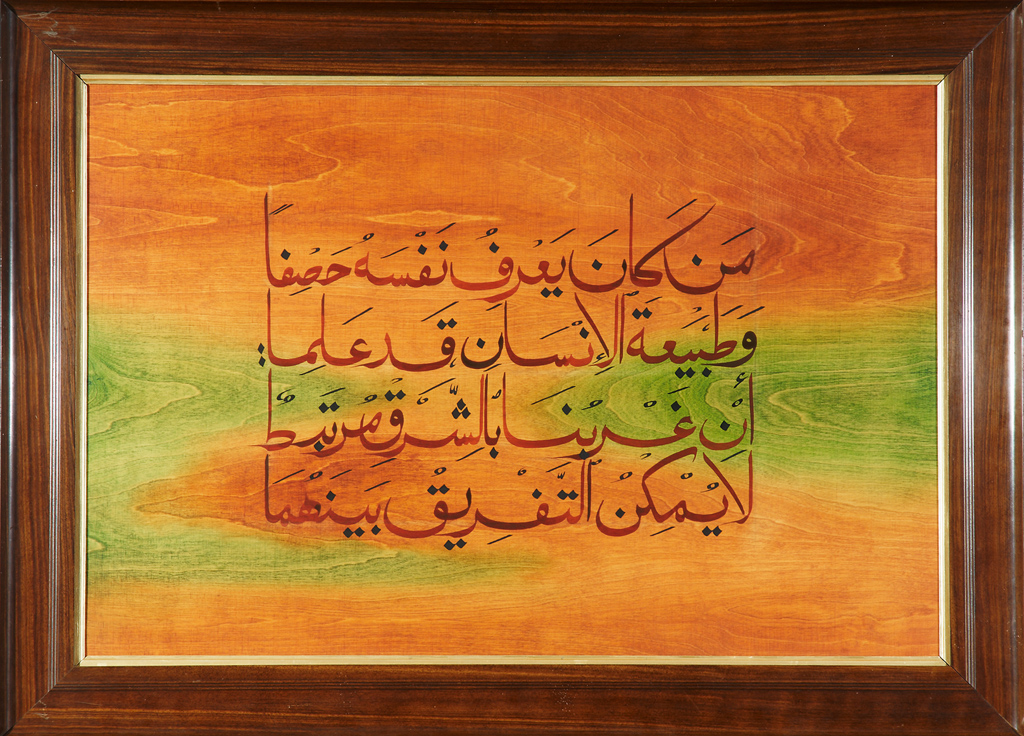 مَن كَانَ يَعْرِفُ نَفْسَهُ حَصِفاً
وَطَبَيعَةَ الْإِنْسَانِ قَد عَلِمَا:
أَنِ غَرْبُنَا بِالشَّرْقِ مُرْتَبِطُ
لا يُمْكِنُ التَّفْرِيقُ بَينَهُمَا